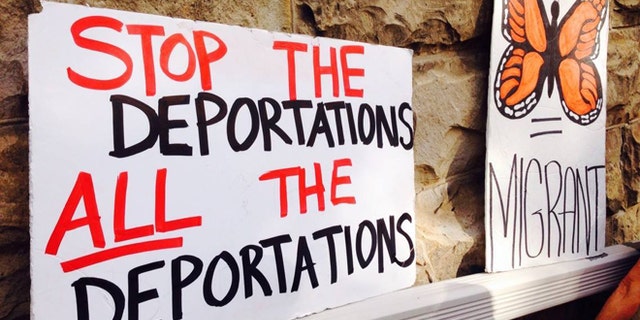 STOP THE
DEPORTATIONS
ALL THE
DEPORTATIONS
=
MIGRANT